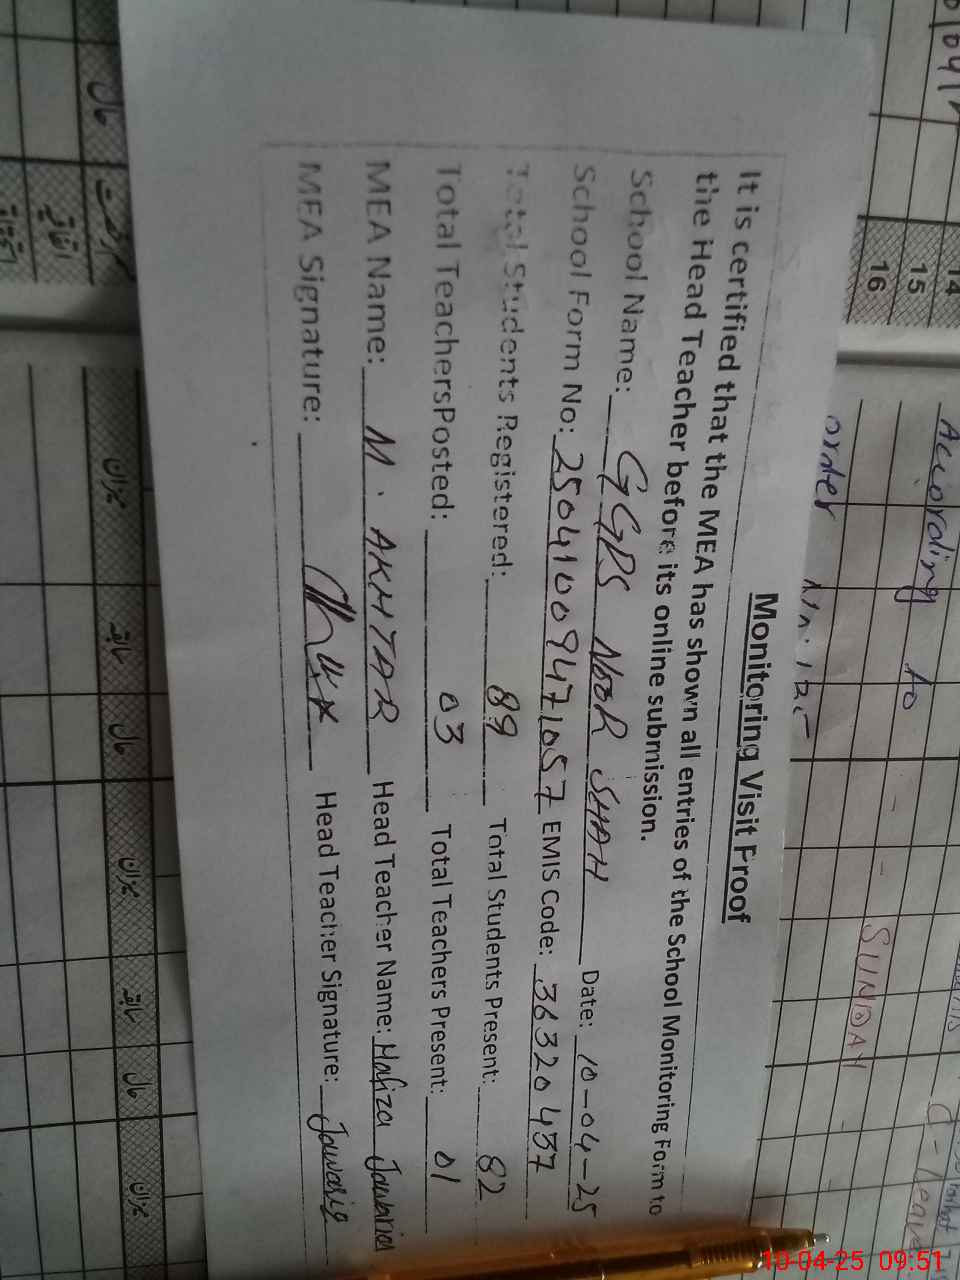 Monitoring Visit Proof
It is certified that the MEA has shown all entries of the School Monitoring Form to
the Head Teacher before its online submission.
School Name: GGPS NOOR SHAH Date: 10-04-25
School Form No: 25041009471057 EMIS Code: 36320437
Total Students Registered: 89 Total Students Present: 82
Total TeachersPosted: 03 Total Teachers Present: 01
MEA Name: M. AKHTAR Head Teacher Name: Hafiza Jawaria
MEA Signature: Head Teacher Signature: Jawaria
14
15
16
According to
order
SUNDAY
حال
میزان
سابقہ
حال
میزان
سابقہ
حال
میزان
10-04-25 09:51